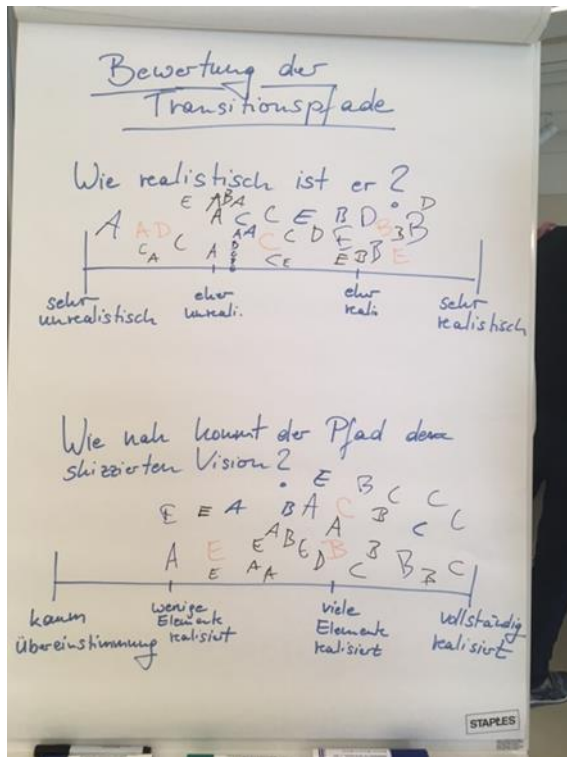 Bewertung der
Transitionspfade
Wie realistisch ist er?
E A B A D
A A D C A C C E B D B B
C A C A A A C C D E B B E
A C E E B B
sehr unrealistisch
eher unreali.
eher reali.
sehr realistisch
Wie nah kommt der Pfad der
skizzierten Vision?
E B C C
E E A B A C B C C
A E E A B E D A B C B B B C
E A A
kaum Übereinstimmung
wenige Elemente realisiert
viele Elemente realisiert
vollständig realisiert
STAPLES